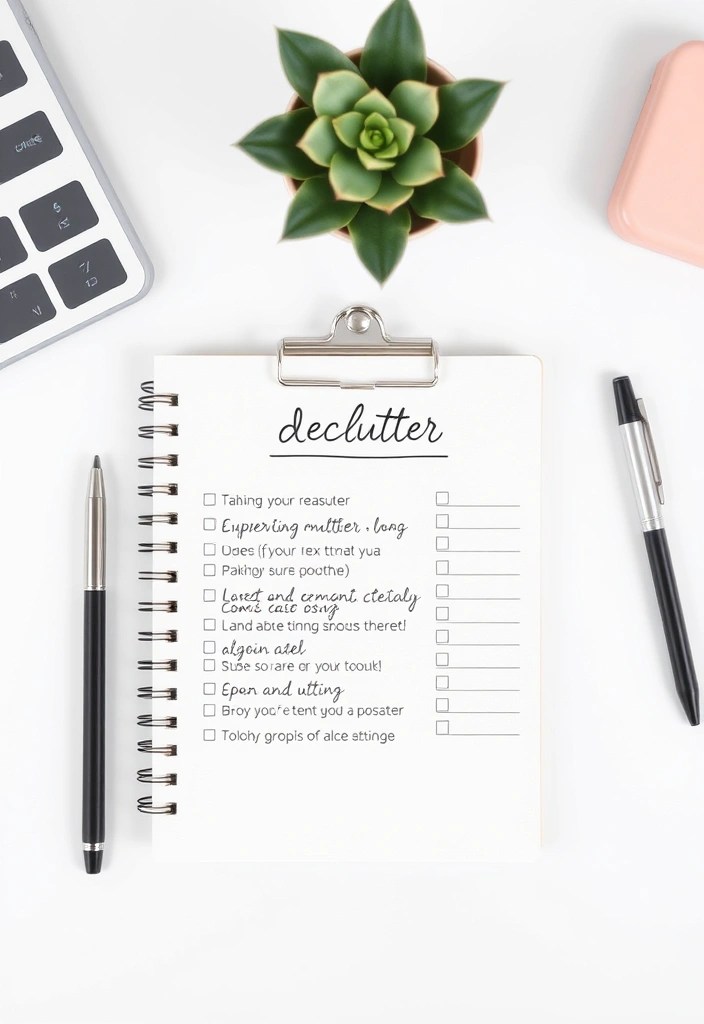 declutter
Tahing your reasuter
Eupersting multter , long
Does (f your rex ttnat yua
Pakhgy sure poothe)
Lasst and cemant, ctetaly
Comè case osng
Land abte tinng snous theret!
algoin atel
Suse so are or your toouk!
Epen and utting
Broy you'e tent you a posater
Tolohy gropis of alce settinge